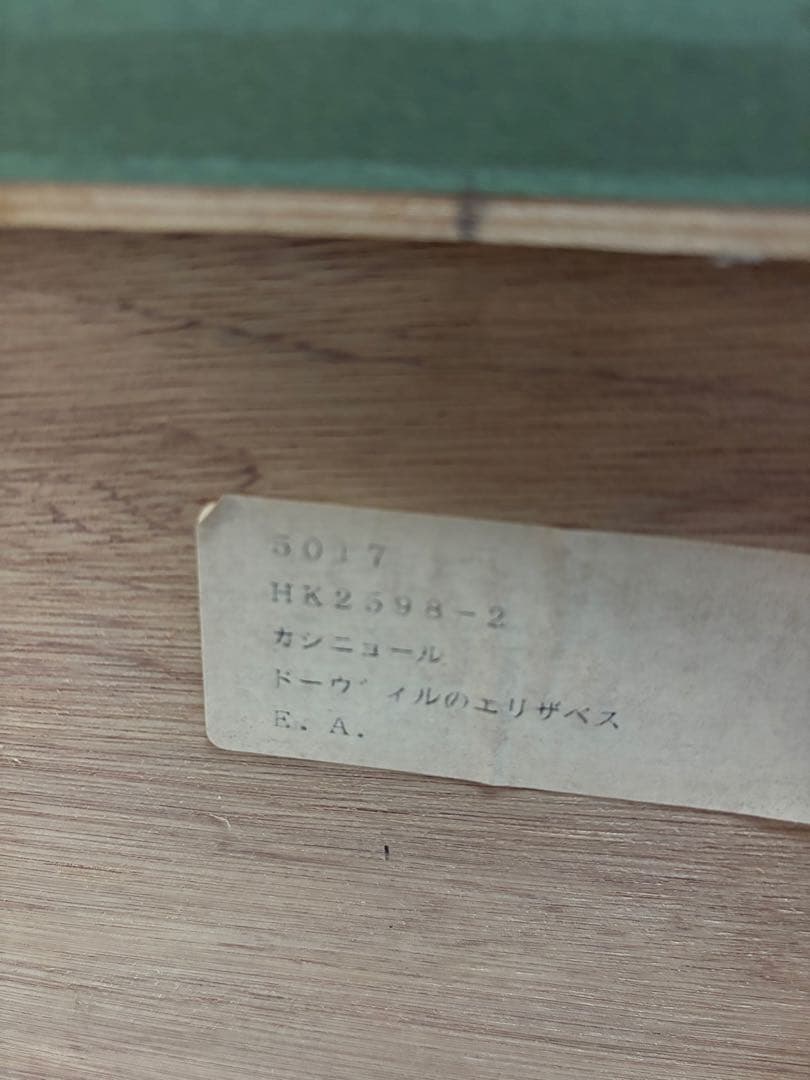 5017
HK2598-2
カシニョール
ドーヴィルのエリザベス
E. A.